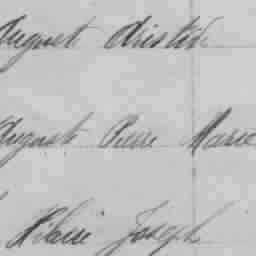 Auguste Aristide
Auguste Pierre Marie
Hilaire Joseph